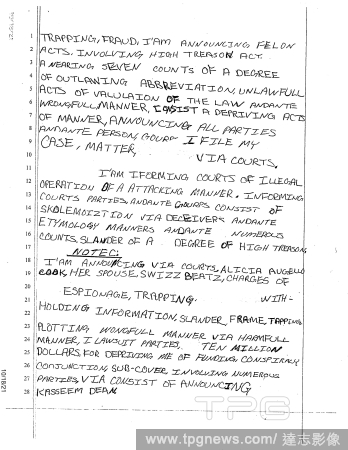 TRAPPING, FRAUD, I'AM ANNOUNCING FELON
ACTS. INVOLVING HIGH TREASON ACT.
A NEARING SEVEN COUNTS OF A DEGREE
OF OUTLAWING ABBREVIATION, UNLAWFULL
ACTS OF VALULAION OF THE LAW ANDANTE
WRONGFULL MANNER, CONSIST A DEPRIVING ACTS
OF MANNER, ANNOUNCING ALL PARTIES
ANDANTE PERSON, GOURP I FILE MY
CASE, MATTER, VIA COURTS.
I'AM IFORMING COURTS OF ILLEGAL
OPERATION OF A ATTACKING MANNER. INFORMING
COURTS PARTIES, ANDANTE GOURPS CONSIST OF
SKOLEMOIZTION VIA DECEIVERS ANDANTE
ETYMOLOGY MANNERS ANDANTE NUMEROUS
COUNTS, SLANDER OF A DEGREE OF HIGH TREASON,
NOTEC:
I'AM ANNOUNCING VIA COURTS, ALICIA AUGELLO
COOK, HER SPOUSE, SWIZZ BEATZ, CHARGES OF
ESPIONAGE, TRAPPING. WITH-
HOLDING INFORMATION, SLANDER, FRAME, TAPPING
PLOTTING WONGFULL MANNER VIA HARMFULL
MANNER, I LAWSUIT PARTIES, TEN MILLION
DOLLARS, FOR DEPRIVING ME OF FUNDING, CONSPIRACY
CONJUNCTION, SUB-COVER INVOLVING NUMEROUS
PARTIES VIA CONSIST OF ANNOUNCING
KASSEEM DEAN
1
2
3
4
5
6
7
8
9
10
11
12
13
14
15
16
17
18
19
20
21
22
23
24
25
26
27
28
10/18/21
TPG
www.tpgnews.com/達志影像